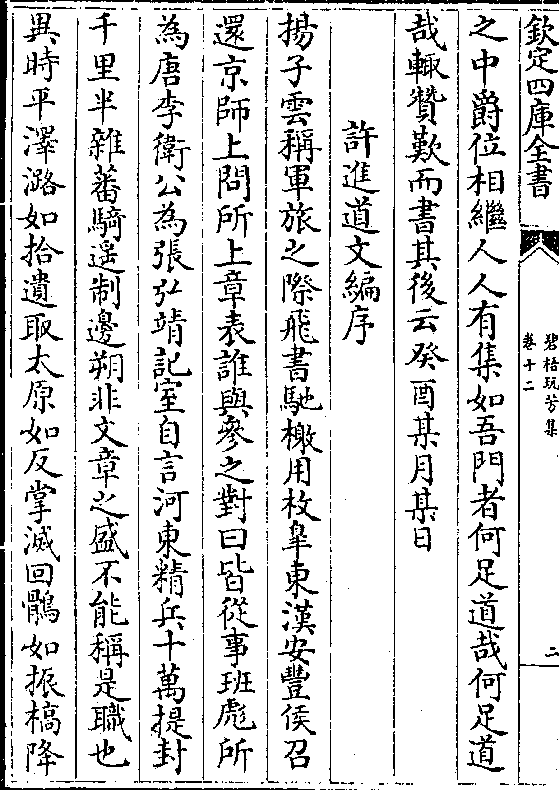 欽定四庫全書
碧梧玩芳集
卷十二
二
之中爵位相繼人人有集如吾門者何足道哉何足道
哉輒贊歎而書其後云癸酉某月某日
許進道文編序
揚子雲稱軍旅之際飛書馳檄用枚臯東漢安豐侯召
還京師上問所上章表誰與參之對曰皆從事班彪所
為唐李衛公為張弘靖記室自言河東精兵十萬提封
千里半雜蕃騎遥制邊朔非文章之盛不能稱是職也
異時平澤潞如拾遺取太原如反掌滅回鶻如振槁降